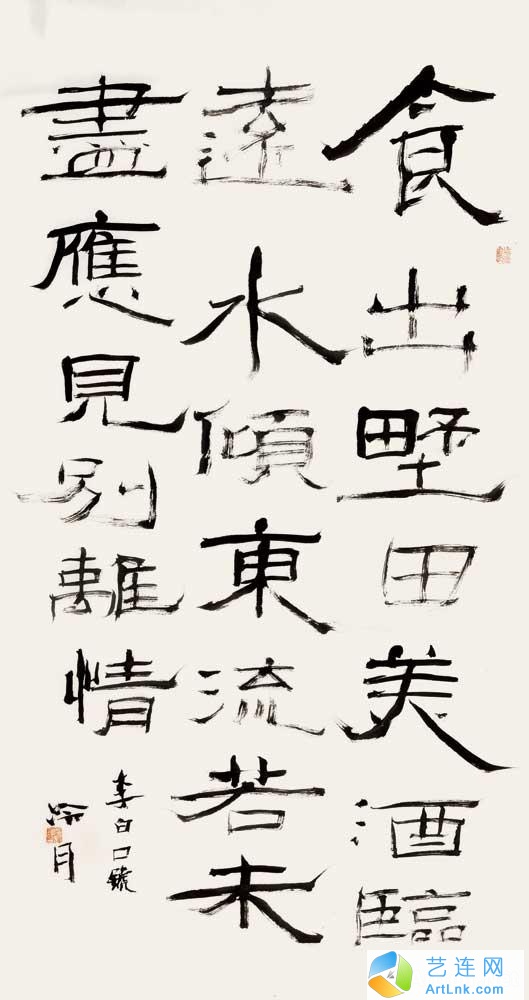 食出野田美酒臨
遠水傾東流若未
盡應見別離情
李白口號
月
艺连网
ArtLnk.com